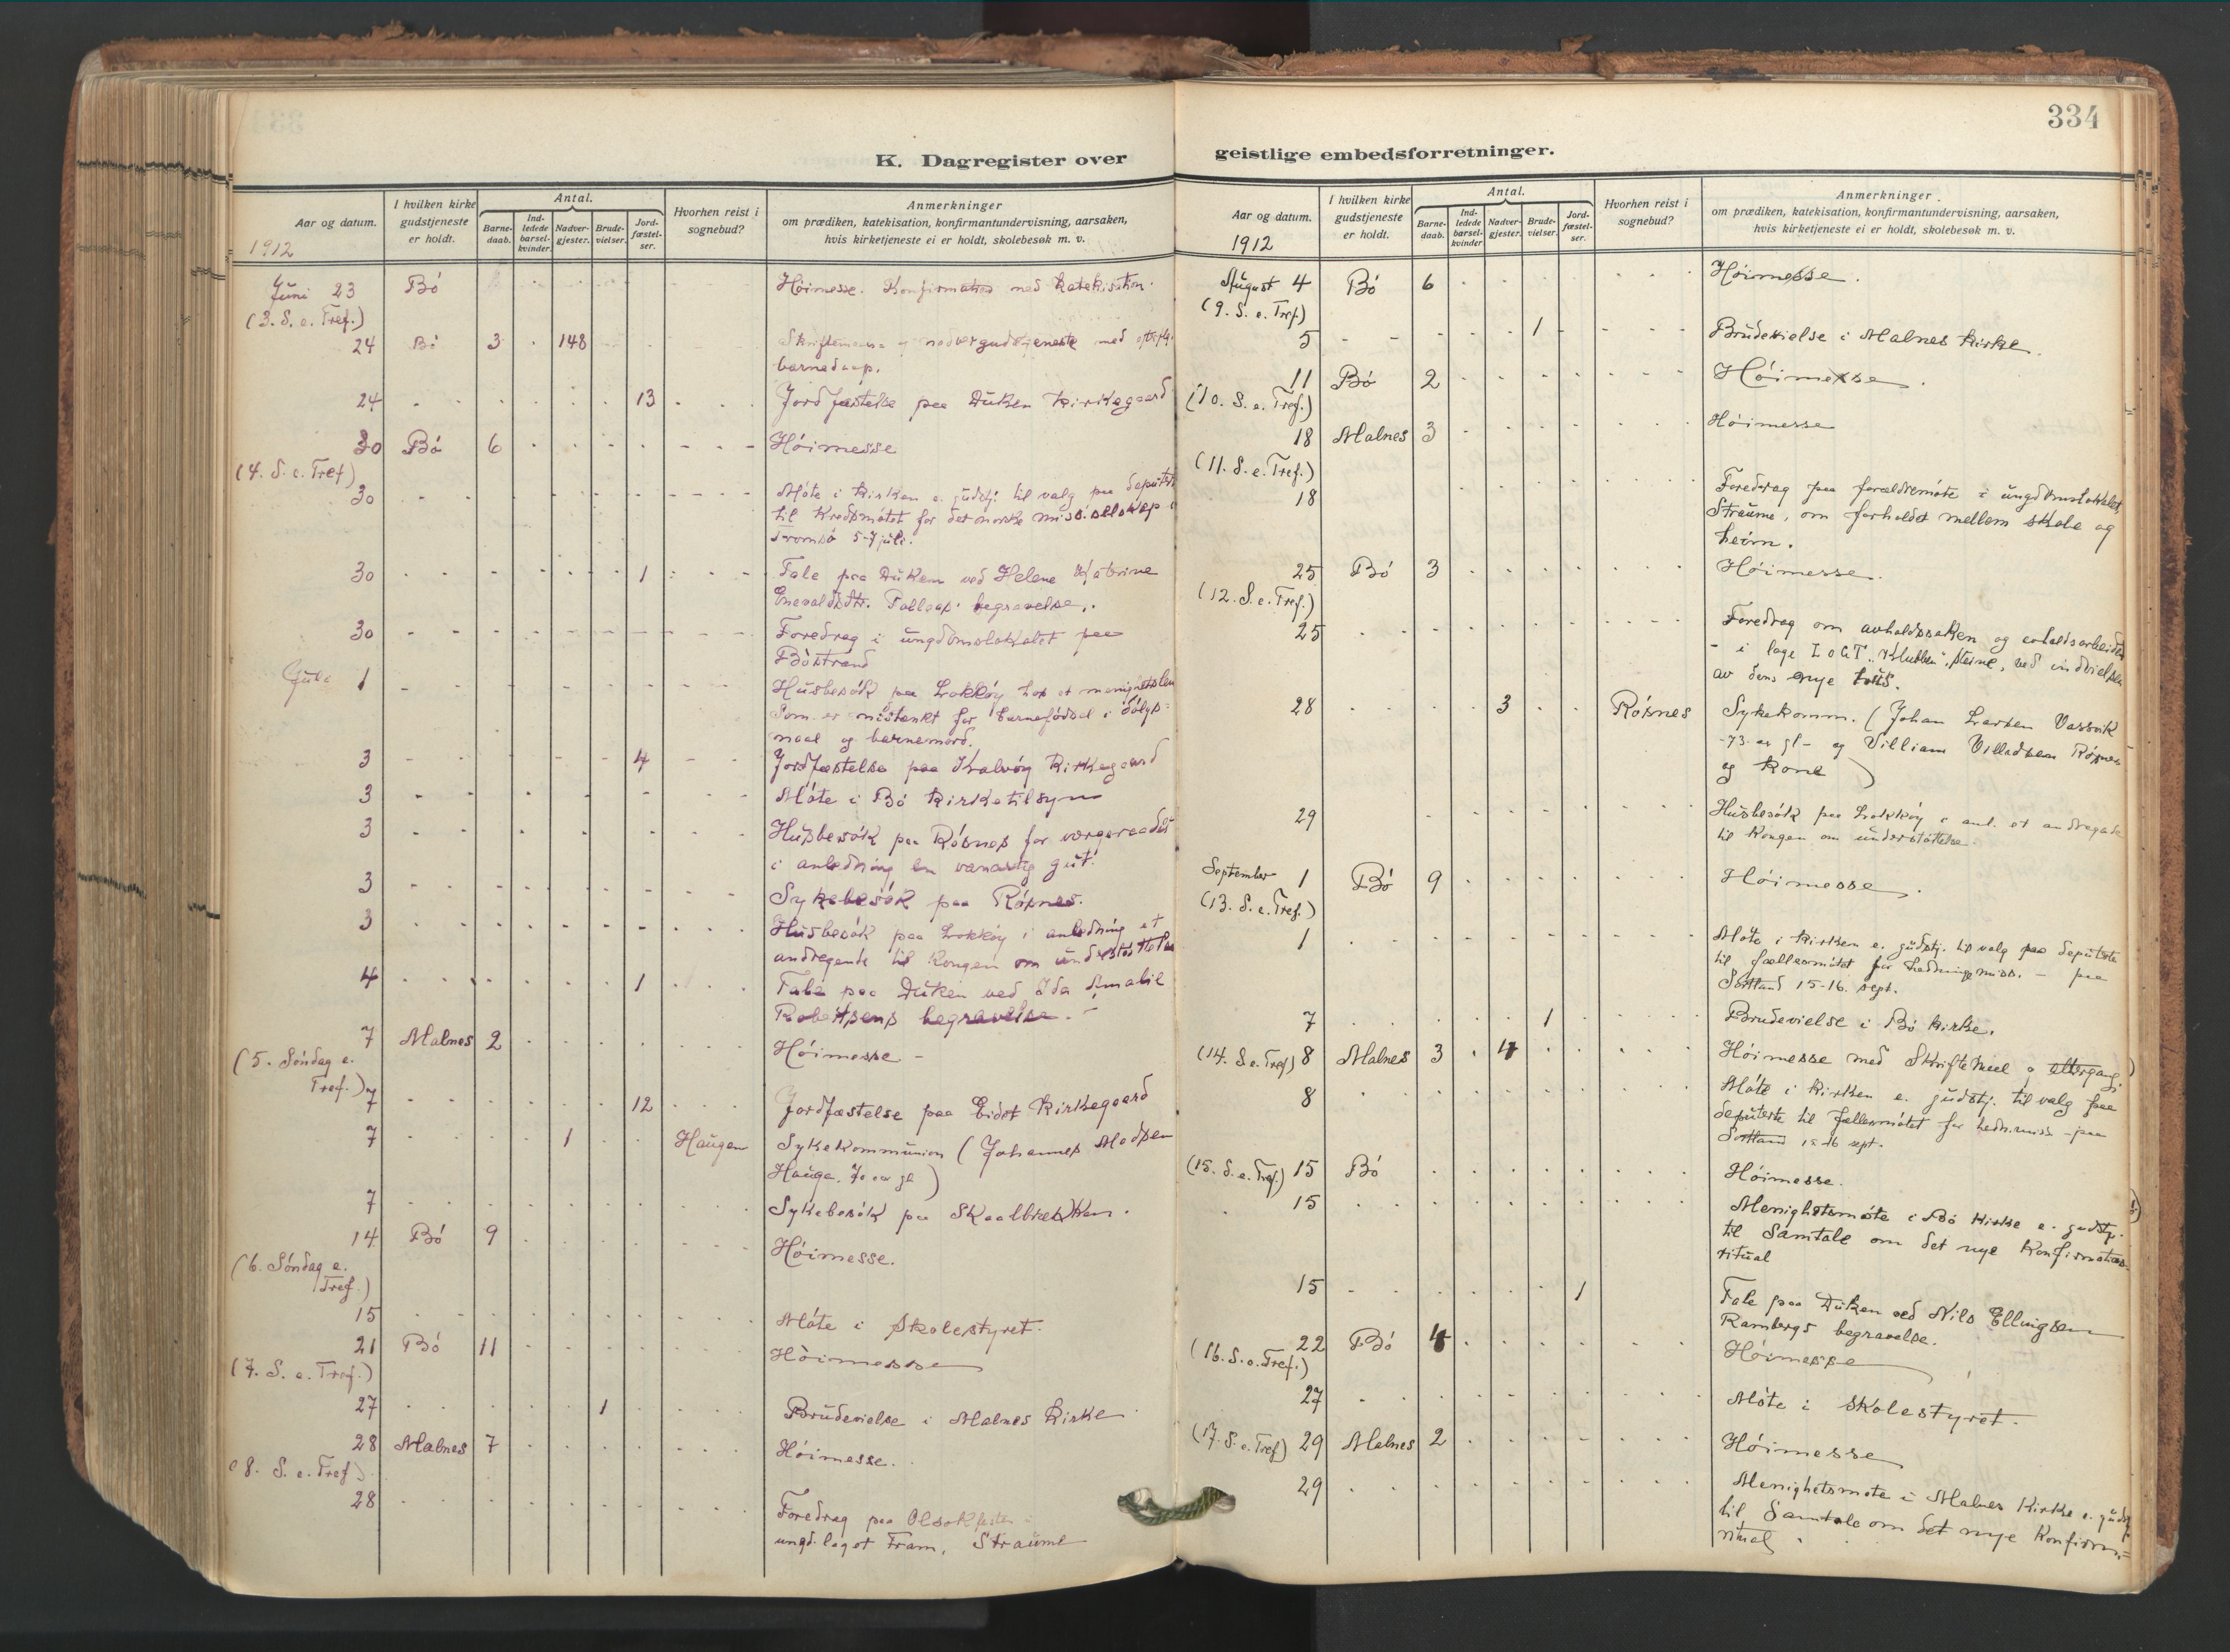 K. Dagregister over
Aar og datum.
1912
I hvilken kirke
gudstjeneste
er holdt.
Antal.
Barne-
daab.
Ind-
ledede
barsel-
kvinder.
Nadver-
gjester.
Brude-
vielser.
Jord-
fæstel-
ser.
Hvorhen reist i
sognebud?
Anmerkninger
om prædiken, katekisation, konfirmantundervisning, aarsaken,
hvis kirketjeneste ei er holdt, skolebesøk m. v.
Juni 23 Bö Höimesse. Konfirmation med Katekisation.
(3. S. e. Tref.)
24 Bö 3 148 Skriftemaal og nadvergudstjeneste med
barnedaap.
24 13 Jordfæstelse paa Duken Kirkegaard
30 Bö 6 Höimesse
(4. S. e. Tref)
30 Möte i Kirken e. gudstj. til valg paa
til Kredsmötet for det norske miss. selskap i
Tromsö 5-7 juli.
30 1 Tale paa Duken ved Helene Katrine
Enevaldsdtr. begravelse.
30 Foredrag i ungdomslokalet paa
Böstrand
Juli 1 Husbesök paa Lokköy hos et
som er mistenkt for barnefödsel i dölgs=
maal og barnemord.
3 4 Jordfæstelse paa Kalvöy Kirkegaard
3 Möte i Bö Kirketilsyn
3 Husbesök paa Rösnes for vergeraadet
i anledning en vanartig gut.
3 Sykebesök paa Rösnes.
3 Husbesök paa Lokköy i anledning et
andragende til Kongen om understöttelse
4 1 Tale paa Duken ved Ida Amalie
Robertsens begravelse.
7 Malnes 2 Höimesse -
(5. Söndag e.
Tref.)
7 12 Jordfæstelse paa Eidet Kirkegaard
7 1 Haugen Sykekommunion (Johannes Madsen
Hauga. 70 aar gl)
7 Sykebesök paa Skaalbrekken.
14 Bö 9 Höimesse.
(6. Söndag e.
Tref.)
15 Möte i Skolestyret.
21 Bö 11 Höimesse
(7. S. e. Tref.)
27 1 Brudevielse i Malnes Kirke
28 Malnes 7 Höimesse.
(8. S. e. Tref.)
28 Foredrag paa Olsokfesten i
ungd. laget Fram, Straume
334
geistlige embedsforretninger.
Aar og datum.
1912
I hvilken kirke
gudstjeneste
er holdt.
Antal.
Barne-
daab.
Ind-
ledede
barsel-
kvinder
Nadver-
gjester.
Brude-
vielser.
Jord-
fæstel-
ser.
Hvorhen reist i
sognebud?
Anmerkninger.
om prædiken, katekisation, konfirmantundervisning, aarsaken,
hvis kirketjeneste ei er holdt, skolebesøk m. v.
August 4 Bö 6 Höimesse.
(9. S. e. Tref)
5 1 Brudevielse i Malnes Kirke.
11 Bö 2 Höimesse.
(10. S. e. Tref.)
18 Malnes 3 Höimesse
(11. S. e. Tref.)
18 Foredrag paa forældremöte i ungdomslokalet,
Straume, om forholdet mellem skole og
heim.
25 Bö 3 Höimesse.
(12. S. e. Tref.)
25 Foredrag om avholdssaken og avholdsarbeidet
- i loge I O G T "Klubben", Steine, ved indvielsen
av dens nye hus.
28 3 Rösnes Sykekomm. (Johan Larsen Vassvik
-73 aar gl- og Villiam Villadsen Rösnes
og Kone)
29 Husbesök paa Lokköy i anl. et andragende
til Kongen om understöttelse.
September 1 Bö 9 Höimesse.
(13. S. e. Tref.)
1 Möte i Kirken e. gudstj. til valg paa deputerte
til fællesmötet for hedningemiss. - paa
Sortland 15-16. sept.
7 1 Brudevielse i Bö Kirke.
(14. S. e. Tref) 8 Malnes 3 4 Höimesse med Skriftemaal o altergang.
8 Möte i Kirken e. gudstj. til valg paa
deputerte til fellesmötet for hedn.miss - paa
Sortland 15-16 sept.
(15. S. e. Tref.) 15 Bö Höimesse.
15 Menighetsmöte i Bö Kirke e. gudstj.
til Samtale om det nye Konfirmations-
ritual
15 1 Tale paa Duken ved Nils Ellingsen
Rambergs begravelse.
22 Bö 4 Höimesse
(16. S. e. Tref.)
27 Möte i Skolestyret.
(17. S. e. Tref) 29 Malnes 2 Höimesse
29 Menighetsmöte i Malnes Kirke e. gudstj
til Samtale om det nye Konfirm.=
ritual